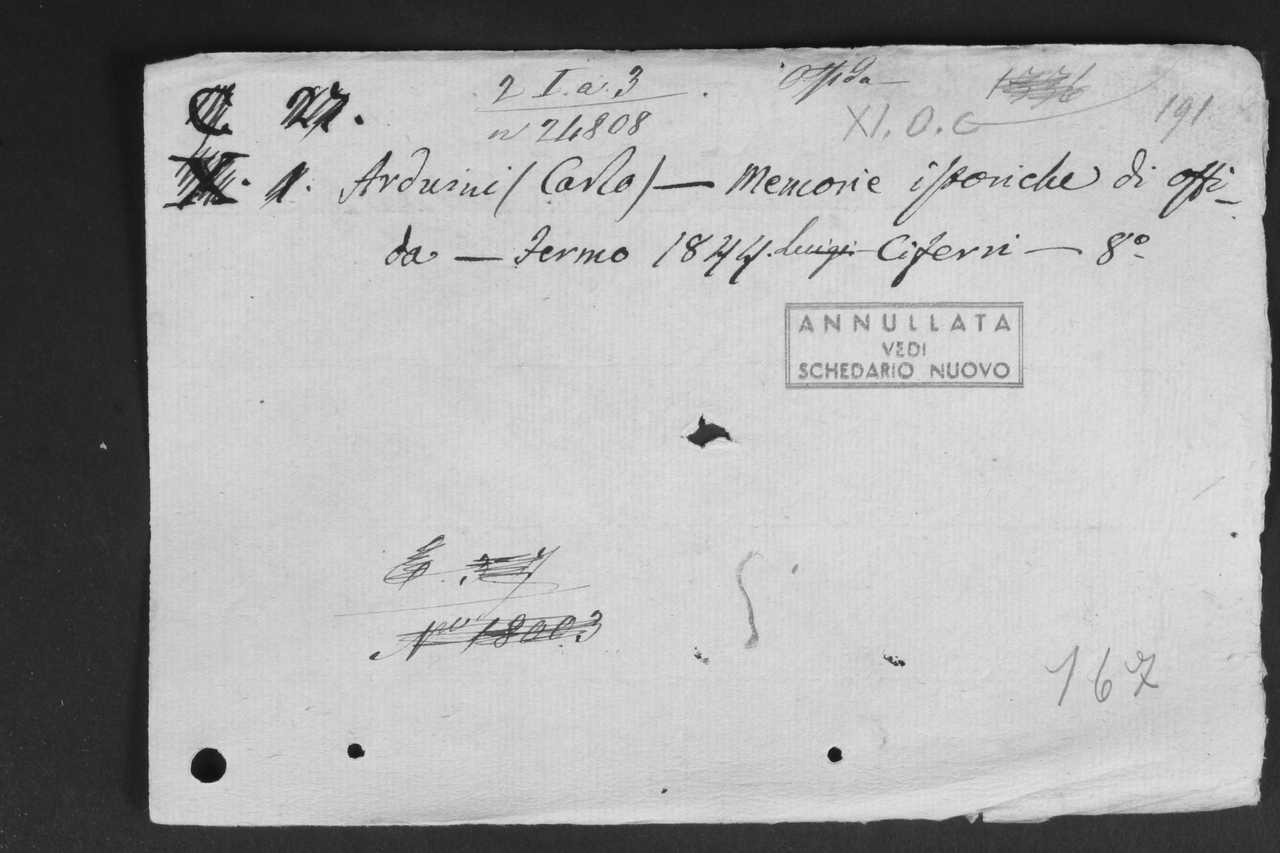 C 27.
2 I.a.3
n 24808
Offida
XI. O. C
191
X. 1. Arduini (Carlo) — Memorie istoriche di Offi-
da — Fermo 1844. Luigi Ciferri — 8°
ANNULLATA
VEDI
SCHEDARIO NUOVO
N.° 18003
167